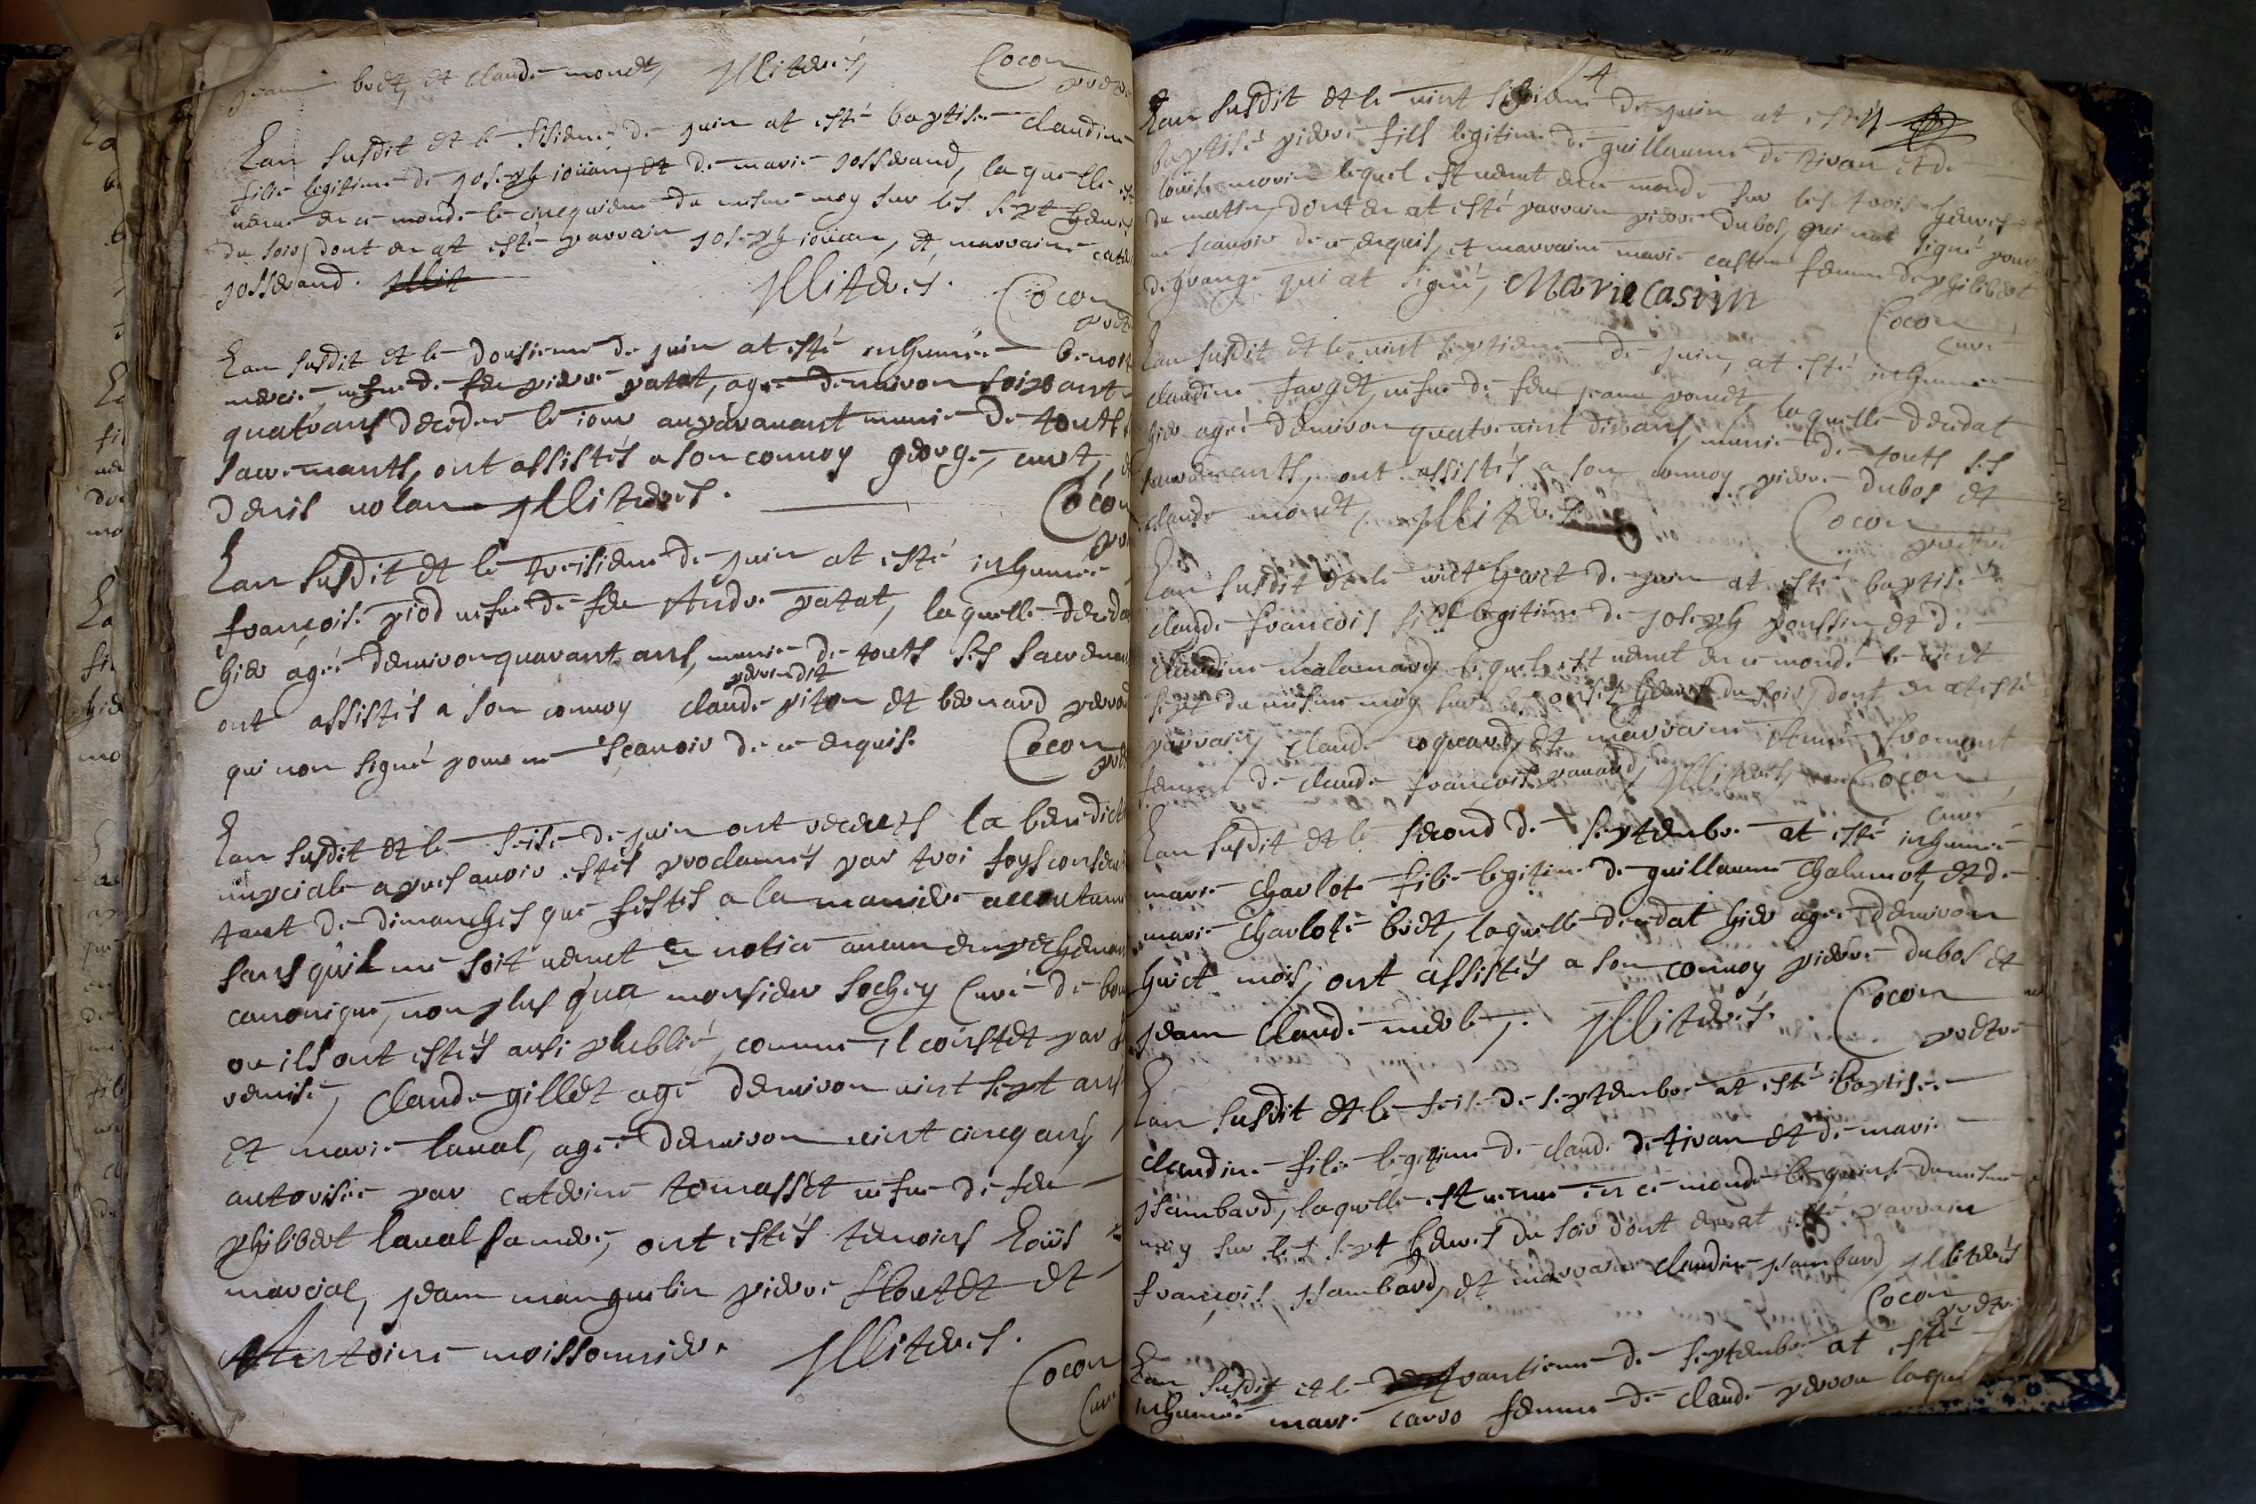 jean buet, et claude monet, jlliterés, Cocon
prêtre
Lan susdit et le sisieme de juin at esté baptisée claudine
filie legitime de joseph iouian, et de marie josserand, la quelle est
venue en ce monde le cincquieme du mesme moy sur les sept heures
du soir, dont en at esté parrain joseph iouian, et marraine cat
josserand. jlliterés.
Cocon
Lan susdit et le dousieme de juin at esté inhumée benoit
mercié, vefue de feu pierre patat, agée denviron soixante
quatrans decedée le iour auparauant munie de touts
sacremants, ont assistés a son conuoy george, cuict, et
denis uolan jlliterés. Cocon
Lan susdit et le treisieme de juin at esté inhumée
françoise piod vefue de feu Andre patat, laquelle deceda
hier agée denviron quarant ans, munie de touts ses sacremants
perrin dit
ont assistés a son conuoy claude piton et bernard perro
qui non signé pour ne sçauoir de ce enquis. Cocon
Lan susdit et le seise de juin ont receus la benedict
nupciale apres auoir estés proclamés par troi foys consecu
tant de dimanches que festes a la maniere accoutume
sans quil me soit uenut en notice aucun empechemant
canonique, non plus qua monsieur sochey Curé de bou
ou ils ont estés ausi plublié, comme il constet par sa
remise, Claude gillet agé denviron uint sept ans
et marie laual, agée denviron uint cincq ans,
autorisée par caterine tomasset vefue de feu
philibert laual sa mere, ont estés temoins Loüis
marcial, jean manguelin pierre floutet et
Antoine moissonnier jlliterés.
Cocon
Curé
4
Lan susdit et le uint sisieme de juin at esté
baptisé pierre fils legitime de guillaume de tiuan et de
louise morin lequel est uenut en ce monde sur les trois heures
du matin, dont en at esté parrain pierre dubos, qui na signé pour
ne scauoir de ce enquis, et marraine marie castin femme de philibert
degrange qui at signé, Marie casiin
Cocon
Curé
Lan susdit et le uint septieme de juin, at esté inhumée
claudine farget, vefue de feu jean ponet, laquelle decedat
hier agée denviron quatreuint dix ans, munie de touts ses
sacremants, ont assistés a son conuoy pierre dubos et
claude monet, jlliterés. Cocon
prêtre
Lan susdit et le uint huict de juin at esté baptisé
claude francois fils legitime de joseph poussin, et de
Claudine malamard lequel est uenut en ce monde le uint
sept du mesme moy sur les onse heures du soir, dont en at esté
parrain claude coquard, et marraine Anne fromont
femme de claude françois pauard, jlliterés Cocon
Curé
Lan susdit et le second de septembre at esté inhumée
marie charlote filie legitime de guillaume chalumot, et de
marie charlote buet, laquelle decedat hier agée denviron
huict mois, ont assistés a son conuoy pierre dubos et
jean claude merle, jlliterés. Cocon
prêtre
Lan susdit et le seise de septembre at esté baptisée
claudine filie legitime de claude detiuan et de marie
jsambard, laquelle est uenue en ce monde le quinse du mesme
moy sur les sept heures du soir dont en at esté parrain
françois jsambard, et marraine claudine jsambard, jlliterés
Cocon
prêtre
Lan susdit et le vantieme de septembre at esté
inhumée marie carro femme de claude perrou laquel